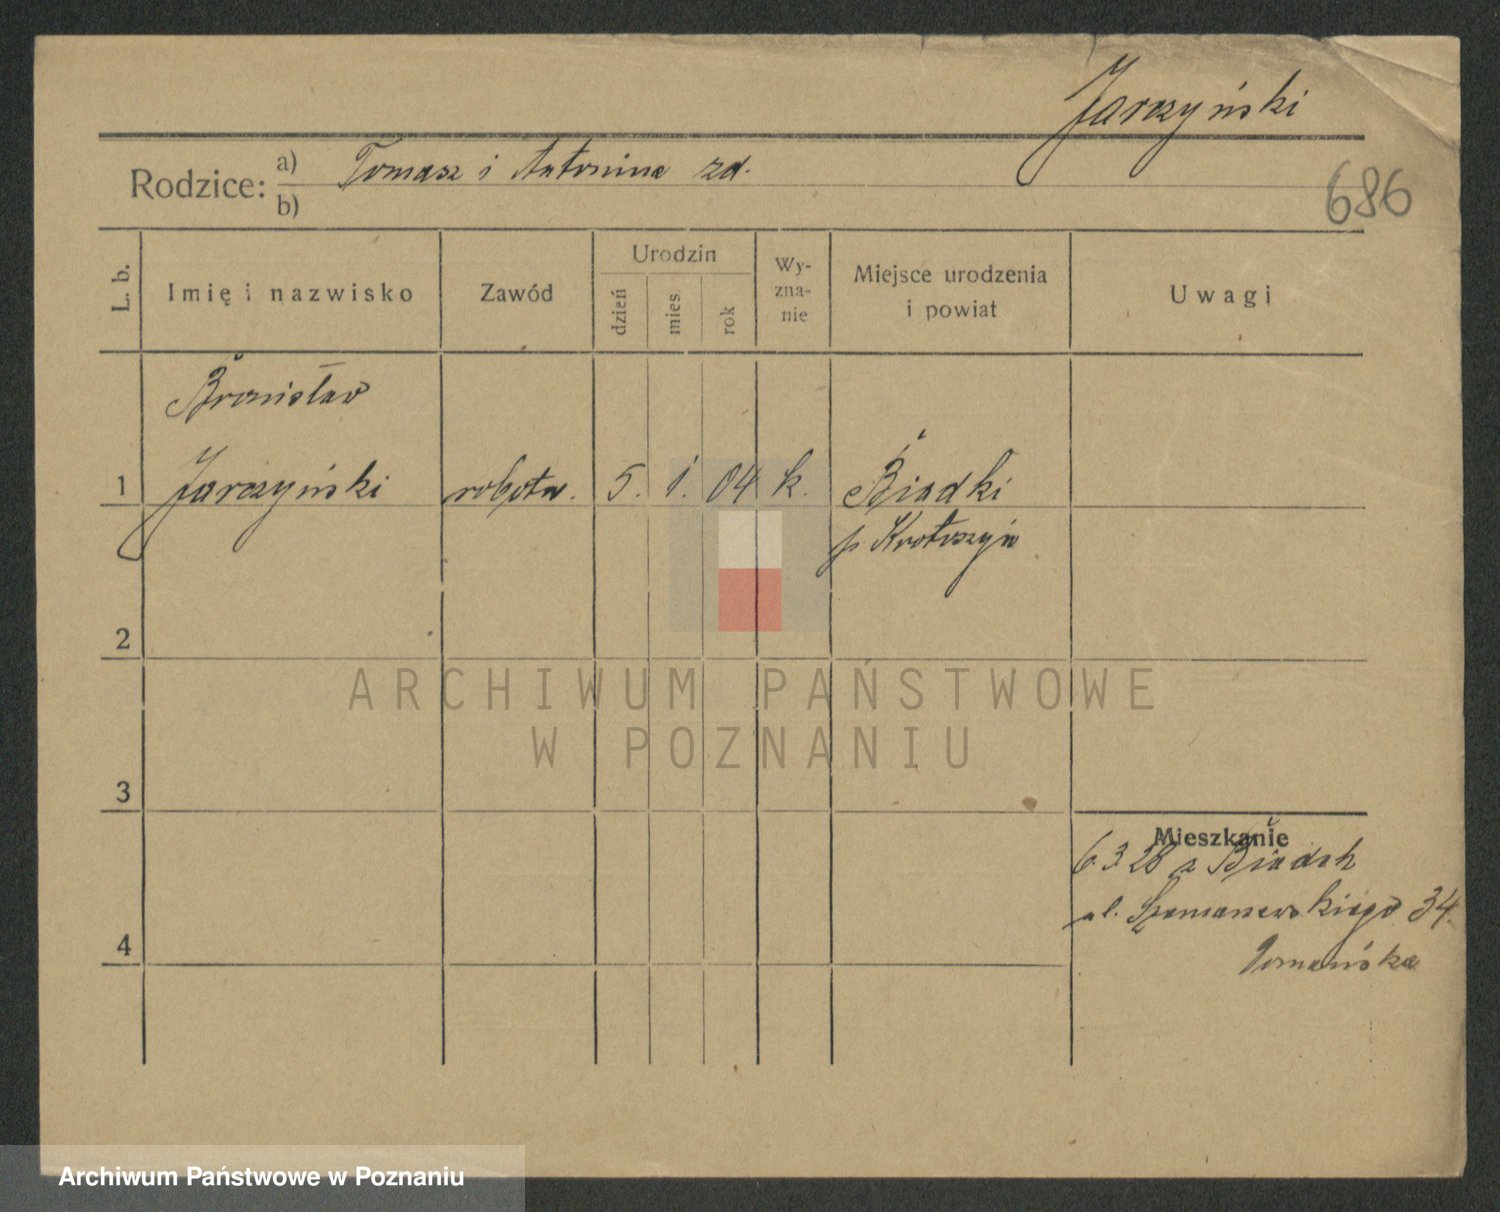 Jarczyński
Rodzice: a) Tomasz i Antonina zd.
b)
686
L. b.
Imię i nazwisko
Zawód
Urodzin
dzień
mies.
rok
Wy-
zna-
nie
Miejsce urodzenia
i powiat
Uwagi
Bronisław
1 Jarczyński robotn. 5. 1. 04 k. Biadki
p. Krotoszyn
2
ARCHIWUM PAŃSTWOWE
W POZNANIU
3
Mieszkanie
6 3 28 z Biadek
ul. 34.
4
Archiwum Państwowe w Poznaniu